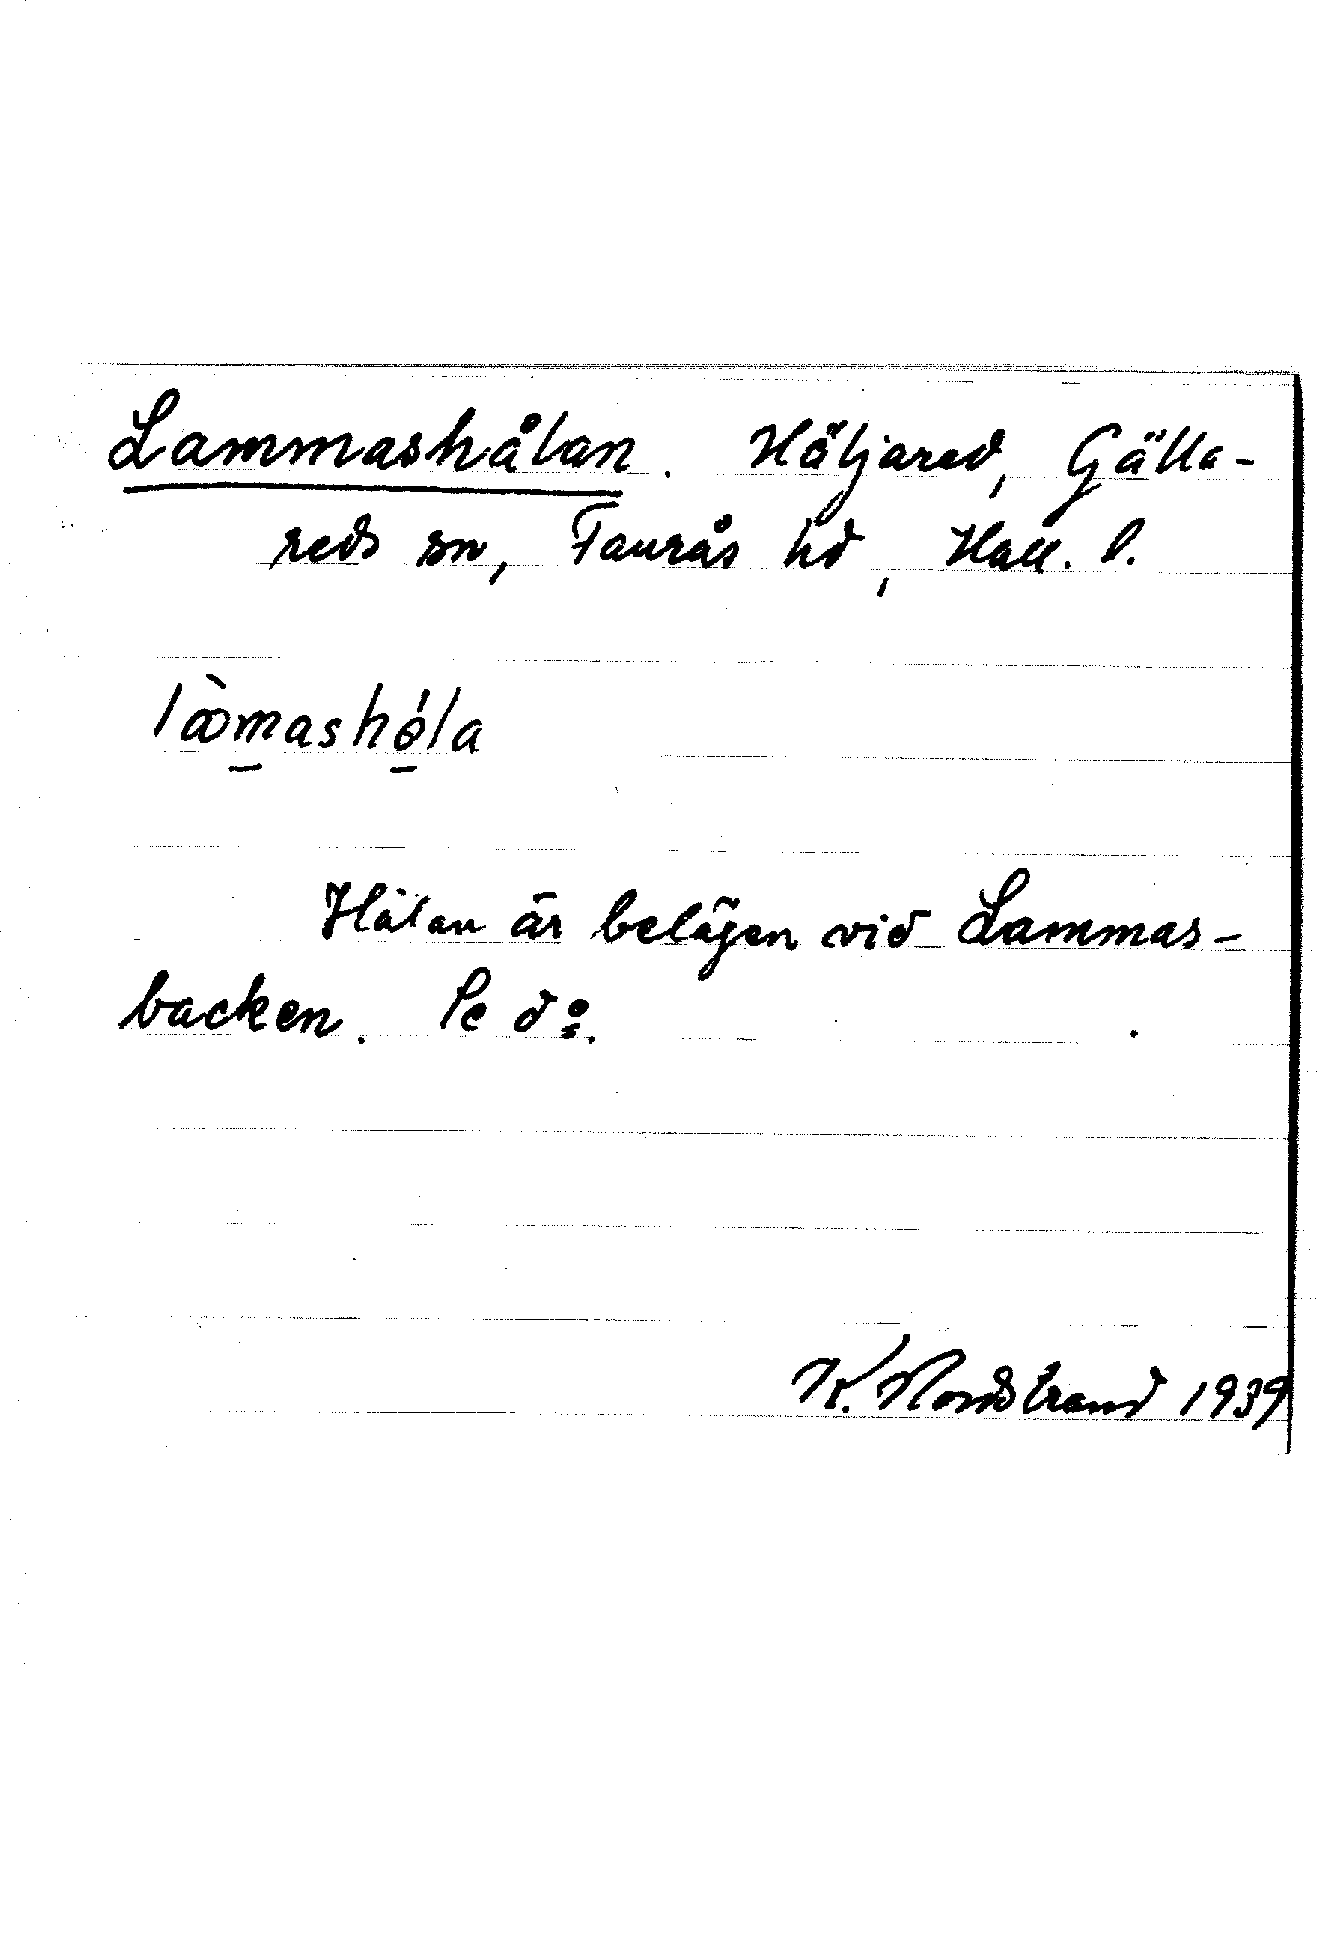 Lammashålan. Höljared, Gälla-
reds sn, Faurås hd, Hall. l.
lòmashóla
Hålan är belägen vid Lammas-
backen. Se do.
K. Nordstrand 1939